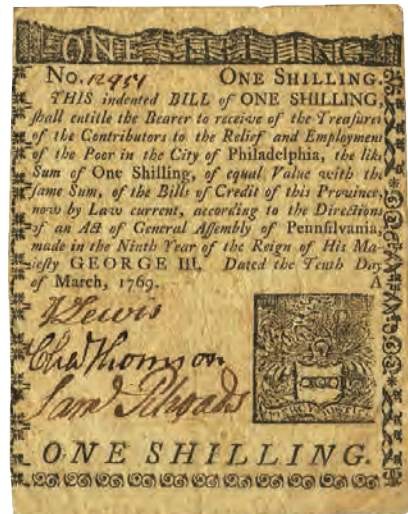 ONE SHILLING
No. 12954 ONE SHILLING.
THIS indented BILL of ONE SHILLING,
ſhall entitle the Bearer to receive of the Treaſurer
of the Contributors to the Relief and Employment
of the Poor in the City of Philadelphia, the like
Sum of One Shilling, of equal Value with the
ſame Sum, of the Bills of Credit of this Province,
now by Law current, according to the Directions
of an Act of General Aſſembly of Pennſilvania,
made in the Ninth Year of the Reign of His Ma-
jeſty GEORGE III. Dated the Tenth Day
of March, 1769. A
Lewis
Chas Thomson
Saml Rhoads
MERCY JUSTICE
ONE SHILLING.